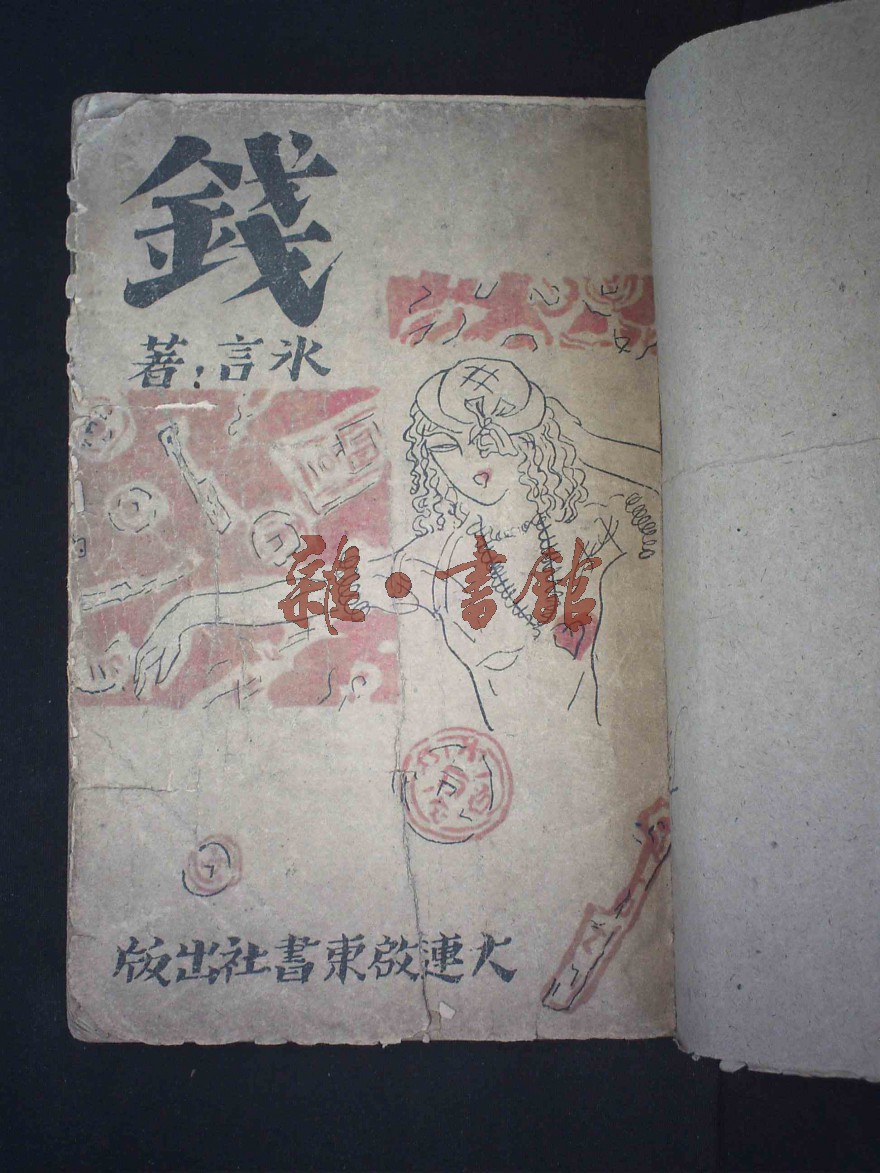 錢
氷言：著
雜·書館
大連啟東書社出版